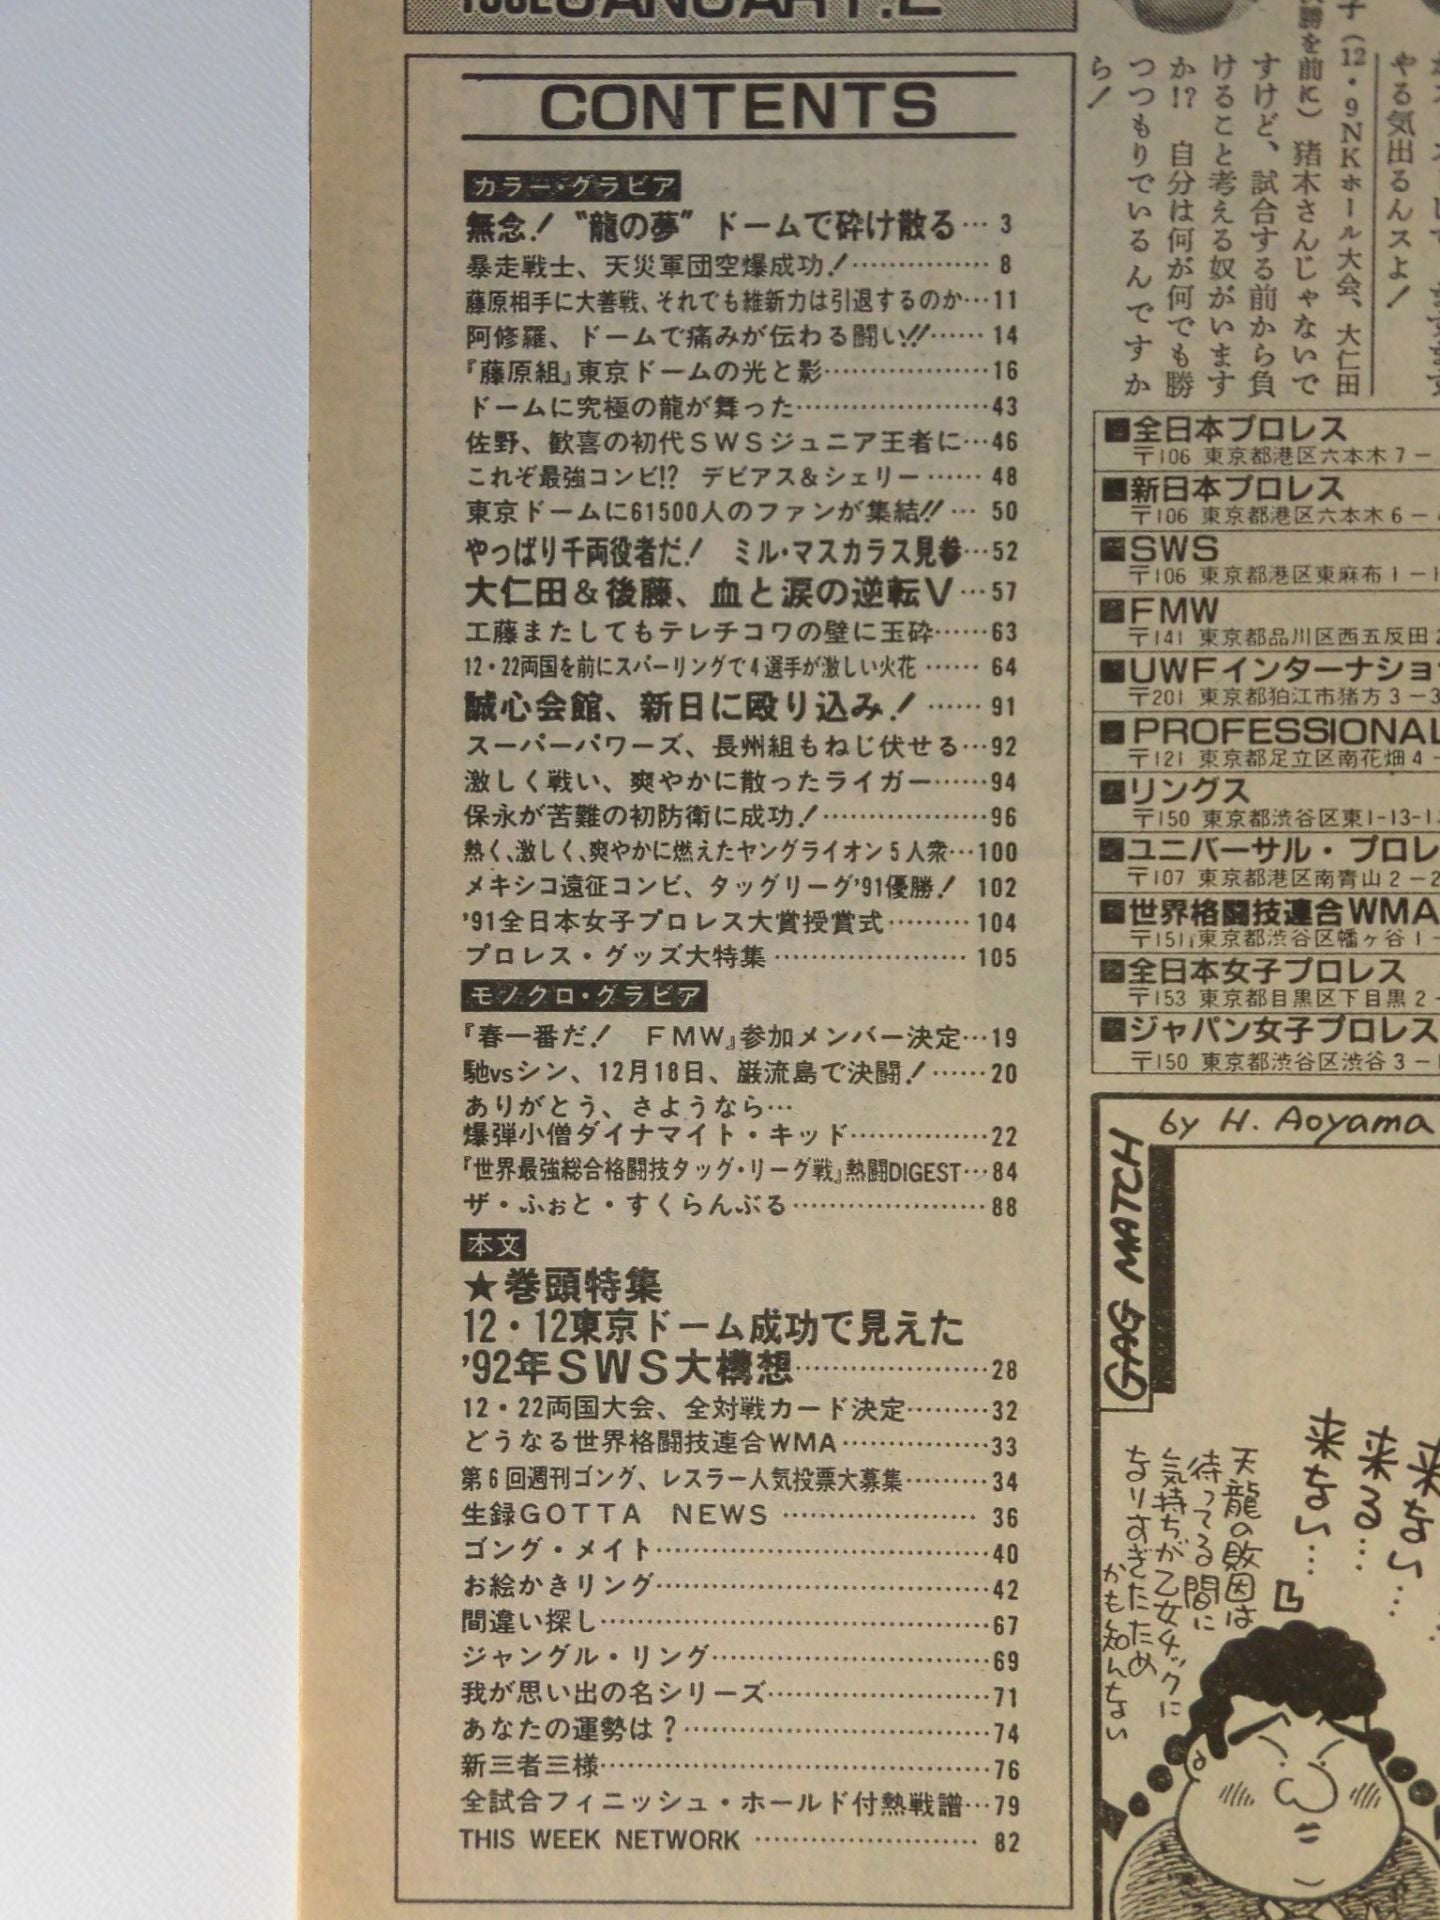 CONTENTS
カラー・グラビア
無念!“龍の夢”ドームで砕け散る…3
暴走戦士、天災軍団空爆成功!……………8
藤原相手に大善戦、それでも維新力は引退するのか…11
阿修羅、ドームで痛みが伝わる闘い!!……14
『藤原組』東京ドームの光と影………………16
ドームに究極の龍が舞った…………………43
佐野、歓喜の初代SWSジュニア王者に…46
これぞ最強コンビ!? デビアス&シェリー……48
東京ドームに61500人のファンが集結!!…50
やっぱり千両役者だ! ミル・マスカラス見参…52
大仁田&後藤、血と涙の逆転V…57
工藤またしてもテレチコワの壁に玉砕……63
12・22両国を前にスパーリングで4選手が激しい火花……64
誠心会館、新日に殴り込み!……91
スーパーパワーズ、長州組もねじ伏せる…92
激しく戦い、爽やかに散ったライガー……94
保永が苦難の初防衛に成功!………………96
熱く、激しく、爽やかに燃えたヤングライオン5人衆…100
メキシコ遠征コンビ、タッグリーグ'91優勝! 102
'91全日本女子プロレス大賞授賞式………104
プロレス・グッズ大特集…………………105
モノクロ・グラビア
『春一番だ! FMW』参加メンバー決定…19
馳vsシン、12月18日、巌流島で決闘!……20
ありがとう、さようなら…
爆弾小僧ダイナマイト・キッド……………22
『世界最強総合格闘技タッグ・リーグ戦』熱闘DIGEST…84
ザ・ふぉと・すくらんぶる…………………88
本文
★巻頭特集
12・12東京ドーム成功で見えた
'92年SWS大構想…………………28
12・22両国大会、全対戦カード決定………32
どうなる世界格闘技連合WMA……………33
第6回週刊ゴング、レスラー人気投票大募集………34
生録GOTTA NEWS…………………36
ゴング・メイト………………………………40
お絵かきリング………………………………42
間違い探し……………………………………67
ジャングル・リング…………………………69
我が思い出の名シリーズ……………………71
あなたの運勢は?……………………………74
新三者三様……………………………………76
全試合フィニッシュ・ホールド付熱戦譜…79
THIS WEEK NETWORK……………………82
(12・9NKホール大会、大仁田
猪木さんじゃないで
すけど、試合する前から負
けること考える奴がいます
か!? 自分は何が何でも勝
つつもりでいるんですか
ら!
やる気出るんスよ!
■全日本プロレス
〒106 東京都港区六本木7-
■新日本プロレス
〒106 東京都港区六本木6-
■SWS
〒106 東京都港区東麻布1-1
■FMW
〒141 東京都品川区西五反田2
■UWFインターナショ
〒201 東京都狛江市猪方3-3
■PROFESSIONAL
〒121 東京都足立区南花畑4-
■リングス
〒150 東京都渋谷区東1-13-1
■ユニバーサル・プロレ
〒107 東京都港区南青山2-2
■世界格闘技連合WMA
〒151 東京都渋谷区幡ヶ谷1-
■全日本女子プロレス
〒153 東京都目黒区下目黒2-
■ジャパン女子プロレス
〒150 東京都渋谷区渋谷3-
by H. Aoyama
GAG MATCH
来ない…
来る…
来ない…
天龍の敗因は
待ってる間に
気持ちが乙女チックに
なりすぎたため
かも知んない